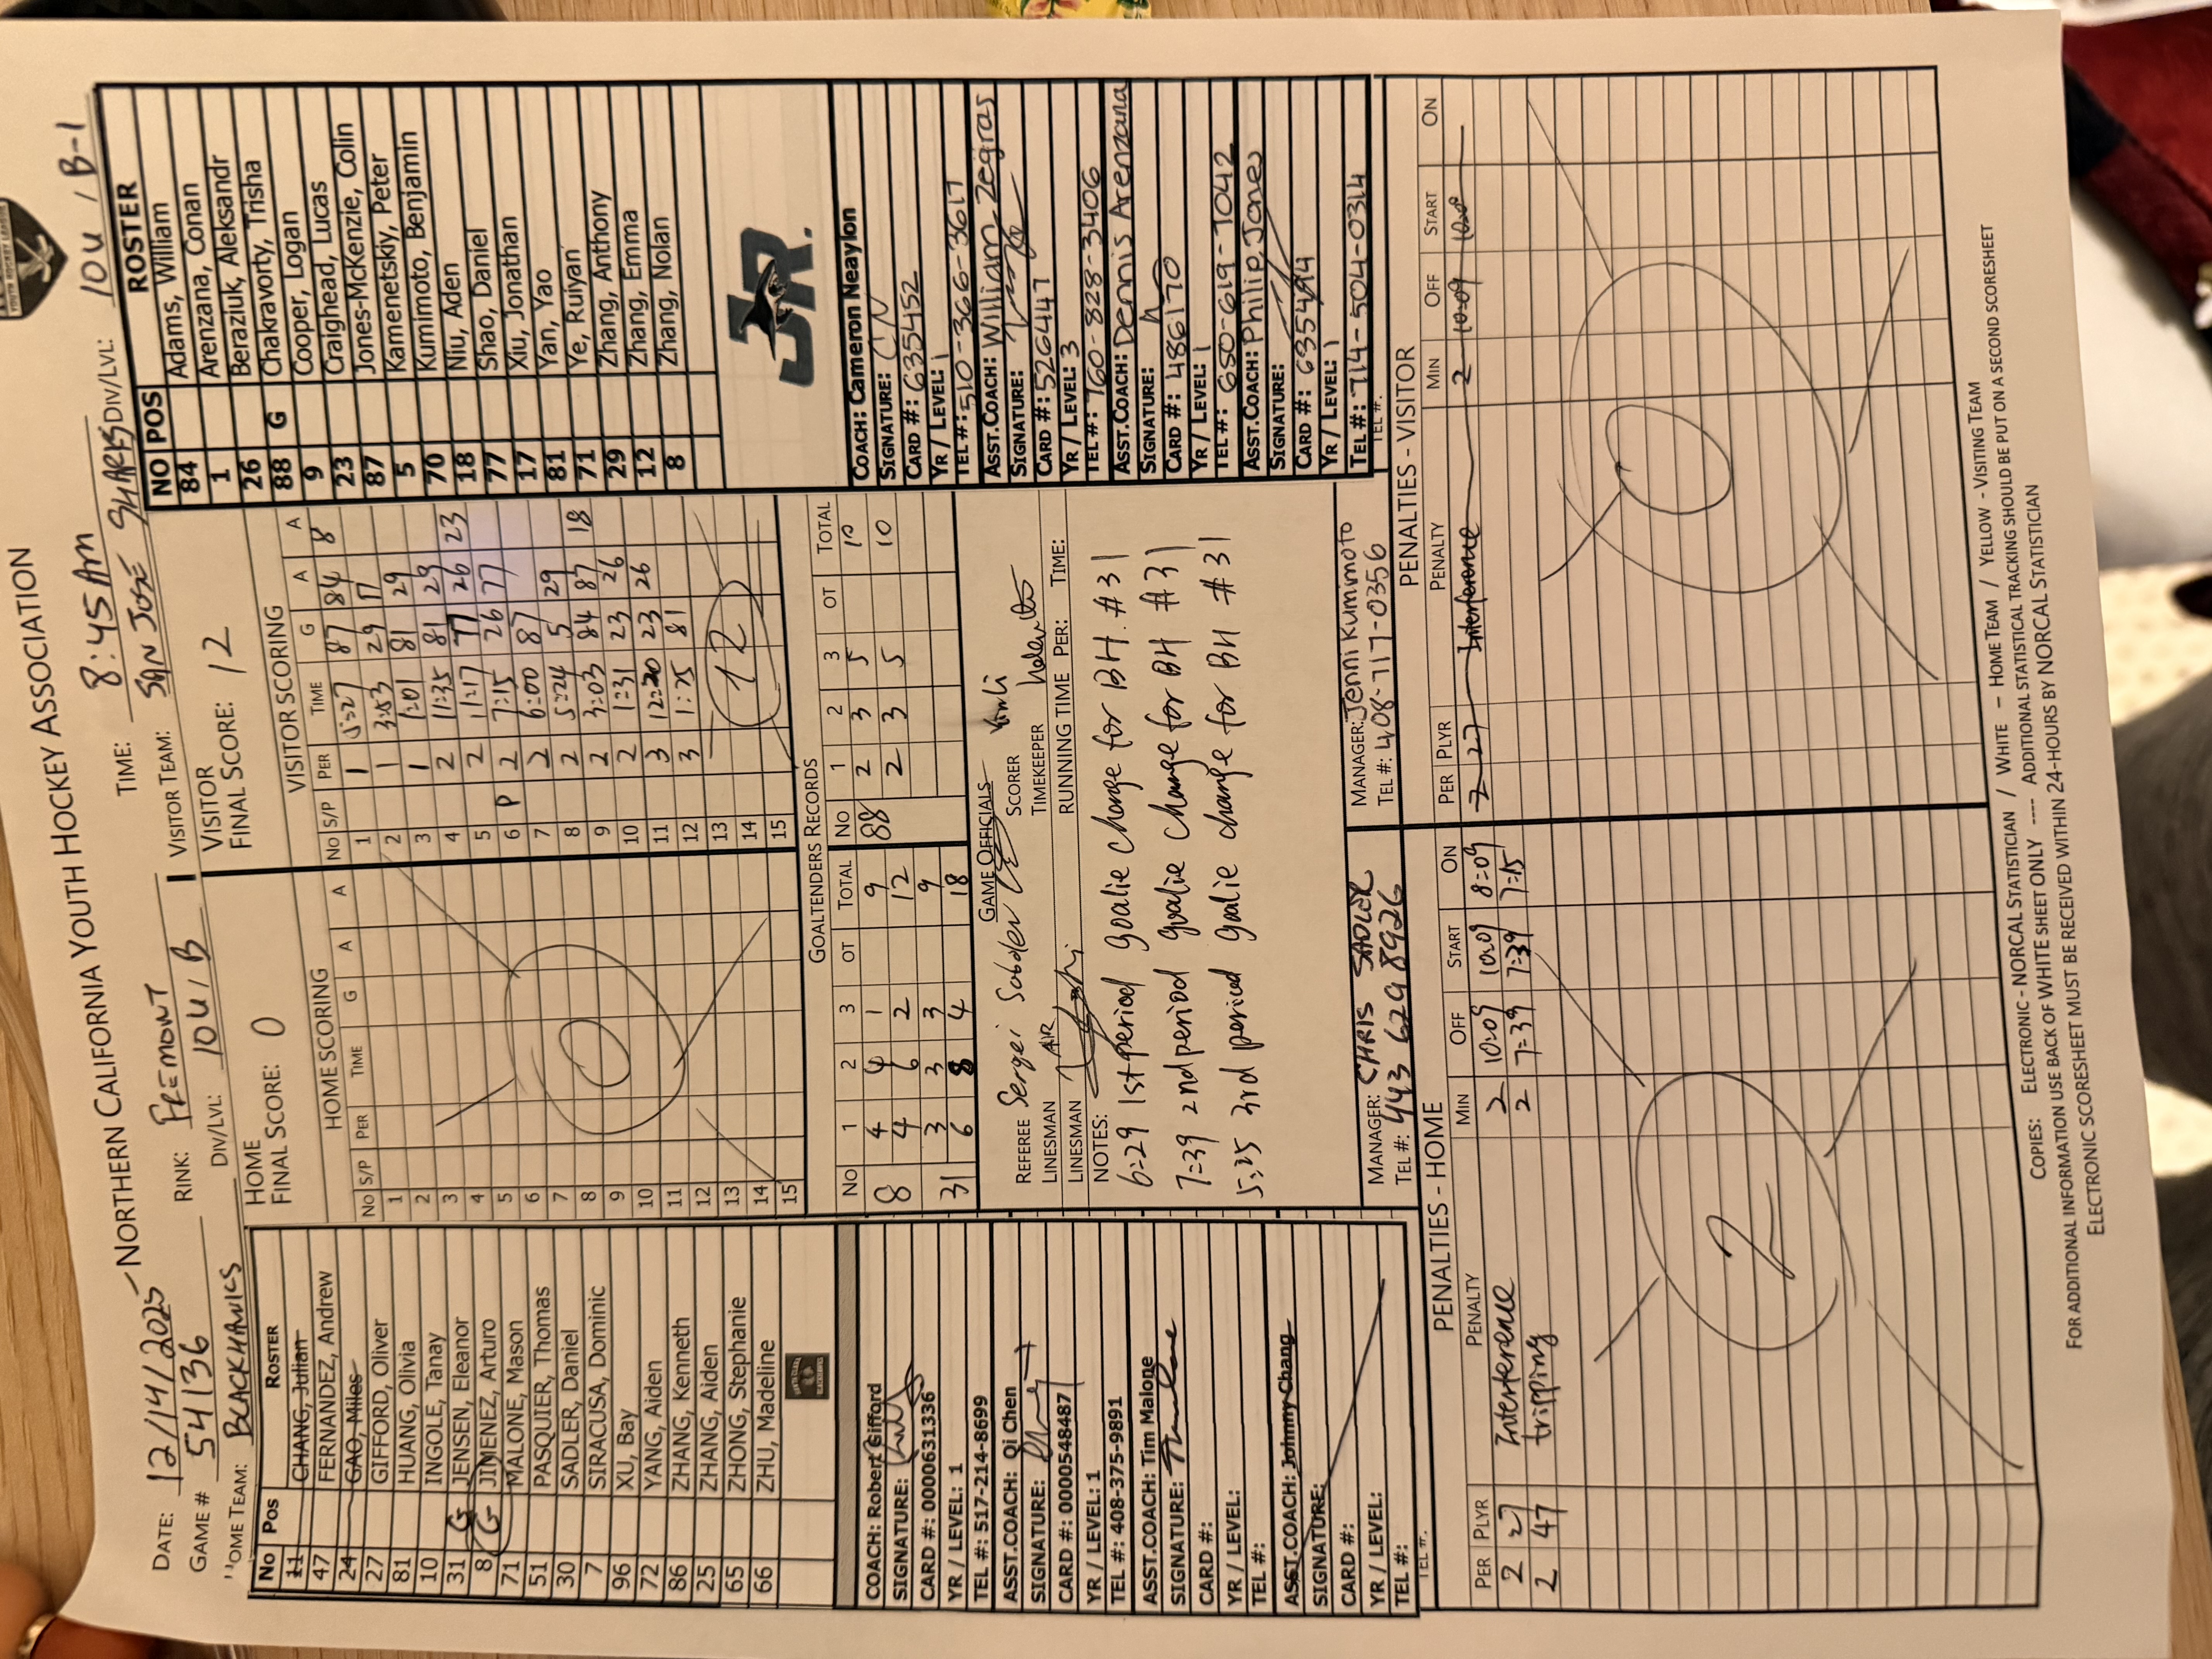 NORTHERN CALIFORNIA YOUTH HOCKEY ASSOCIATION
DATE: 12/14/2025 RINK: FREMONT TIME: 8:45 AM
GAME # 54136 DIV/LVL: 10U / B VISITOR TEAM: SAN JOSE SHARKS DIV/LVL: 10U / B-1
OME TEAM: BLACKHAWKS
HOME
FINAL SCORE: 0
VISITOR
FINAL SCORE: 12
No Pos ROSTER
11 CHANG, Julian
47 FERNANDEZ, Andrew
24 GAO, Miles
27 GIFFORD, Oliver
81 HUANG, Olivia
10 INGOLE, Tanay
31 G JENSEN, Eleanor
8 G JIMENEZ, Arturo
71 MALONE, Mason
51 PASQUIER, Thomas
30 SADLER, Daniel
7 SIRACUSA, Dominic
96 XU, Bay
72 YANG, Aiden
86 ZHANG, Kenneth
25 ZHANG, Aiden
65 ZHONG, Stephanie
66 ZHU, Madeline
COACH: Robert Gifford
SIGNATURE:
CARD #: 0000631336
YR / LEVEL: 1
TEL #: 517-214-8699
ASST.COACH: Qi Chen
SIGNATURE:
CARD #: 0000548487
YR / LEVEL: 1
TEL #: 408-375-9891
ASST.COACH: Tim Malone
SIGNATURE:
CARD #:
YR / LEVEL:
TEL #:
ASST.COACH: Johnny Chang
SIGNATURE:
CARD #:
YR / LEVEL:
TEL #:
TEL #:
HOME SCORING
No S/P PER TIME G A A
1
2
3
4
5
6
7
8
9
10
11
12
13
14
15
0
VISITOR SCORING
No S/P PER TIME G A A
1 1 87 84 8
2 1 3:53 29 17
3 1 1:01 81 29
4 2 11:35 81 29
5 2 11:17 77 26 23
6 P 2 7:15 26 77
7 2 6:00 87
8 2 5:24 5 29
9 2 3:03 84 87 18
10 2 1:31 23 26
11 3 12:20 23 26
12 3 1:25 81
13
14
15
12
GOALTENDERS RECORDS
No 1 2 3 OT TOTAL No 1 2 3 OT TOTAL
8 4 4 1 9 88 2 3 5 10
4 6 2 12 2 3 5 10
31 3 3 3 9
6 8 4 18
GAME OFFICIALS
REFEREE Sergei SCORER
LINESMAN TIMEKEEPER
LINESMAN RUNNING TIME PER: TIME:
NOTES:
6:29 1st period goalie change for BH. #31
7:39 2nd period goalie change for BH #31
5:25 3rd period goalie change for BH #31
MANAGER: CHRIS SADLER
TEL #: 443 629 8926
MANAGER: Jenni Kumimoto
TEL #: 408-717-0356
NO POS ROSTER
84 Adams, William
1 Arenzana, Conan
26 Beraziuk, Aleksandr
88 G Chakravorty, Trisha
9 Cooper, Logan
23 Craighead, Lucas
87 Jones-McKenzie, Colin
5 Kamenetskiy, Peter
70 Kumimoto, Benjamin
18 Niu, Aden
77 Shao, Daniel
17 Xiu, Jonathan
81 Yan, Yao
71 Ye, Ruiyan
29 Zhang, Anthony
12 Zhang, Emma
8 Zhang, Nolan
JR.
COACH: Cameron Neaylon
SIGNATURE: C N
CARD #: 635452
YR / LEVEL: 1
TEL #: 510-366-3617
ASST.COACH: William Zegras
SIGNATURE:
CARD #: 526447
YR / LEVEL: 3
TEL #: 760-828-3406
ASST.COACH: Dennis Arenzana
SIGNATURE:
CARD #: 486170
YR / LEVEL: 1
TEL #: 650-619-7042
ASST.COACH: Philip Jones
SIGNATURE:
CARD #: 635494
YR / LEVEL: 1
TEL #: 714-504-0314
TEL #:
PENALTIES - HOME
PER PLYR PENALTY MIN OFF START ON
2 27 Interference 2 10:09 10:09 8:09
2 47 tripping 2 7:39 7:39 7:15
2
PENALTIES - VISITOR
PER PLYR PENALTY MIN OFF START ON
2 27 Interference 2 10:09
0
COPIES: ELECTRONIC - NORCAL STATISTICIAN / WHITE - HOME TEAM / YELLOW - VISITING TEAM
FOR ADDITIONAL INFORMATION USE BACK OF WHITE SHEET ONLY ---- ADDITIONAL STATISTICAL TRACKING SHOULD BE PUT ON A SECOND SCORESHEET
ELECTRONIC SCORESHEET MUST BE RECEIVED WITHIN 24-HOURS BY NORCAL STATISTICIAN